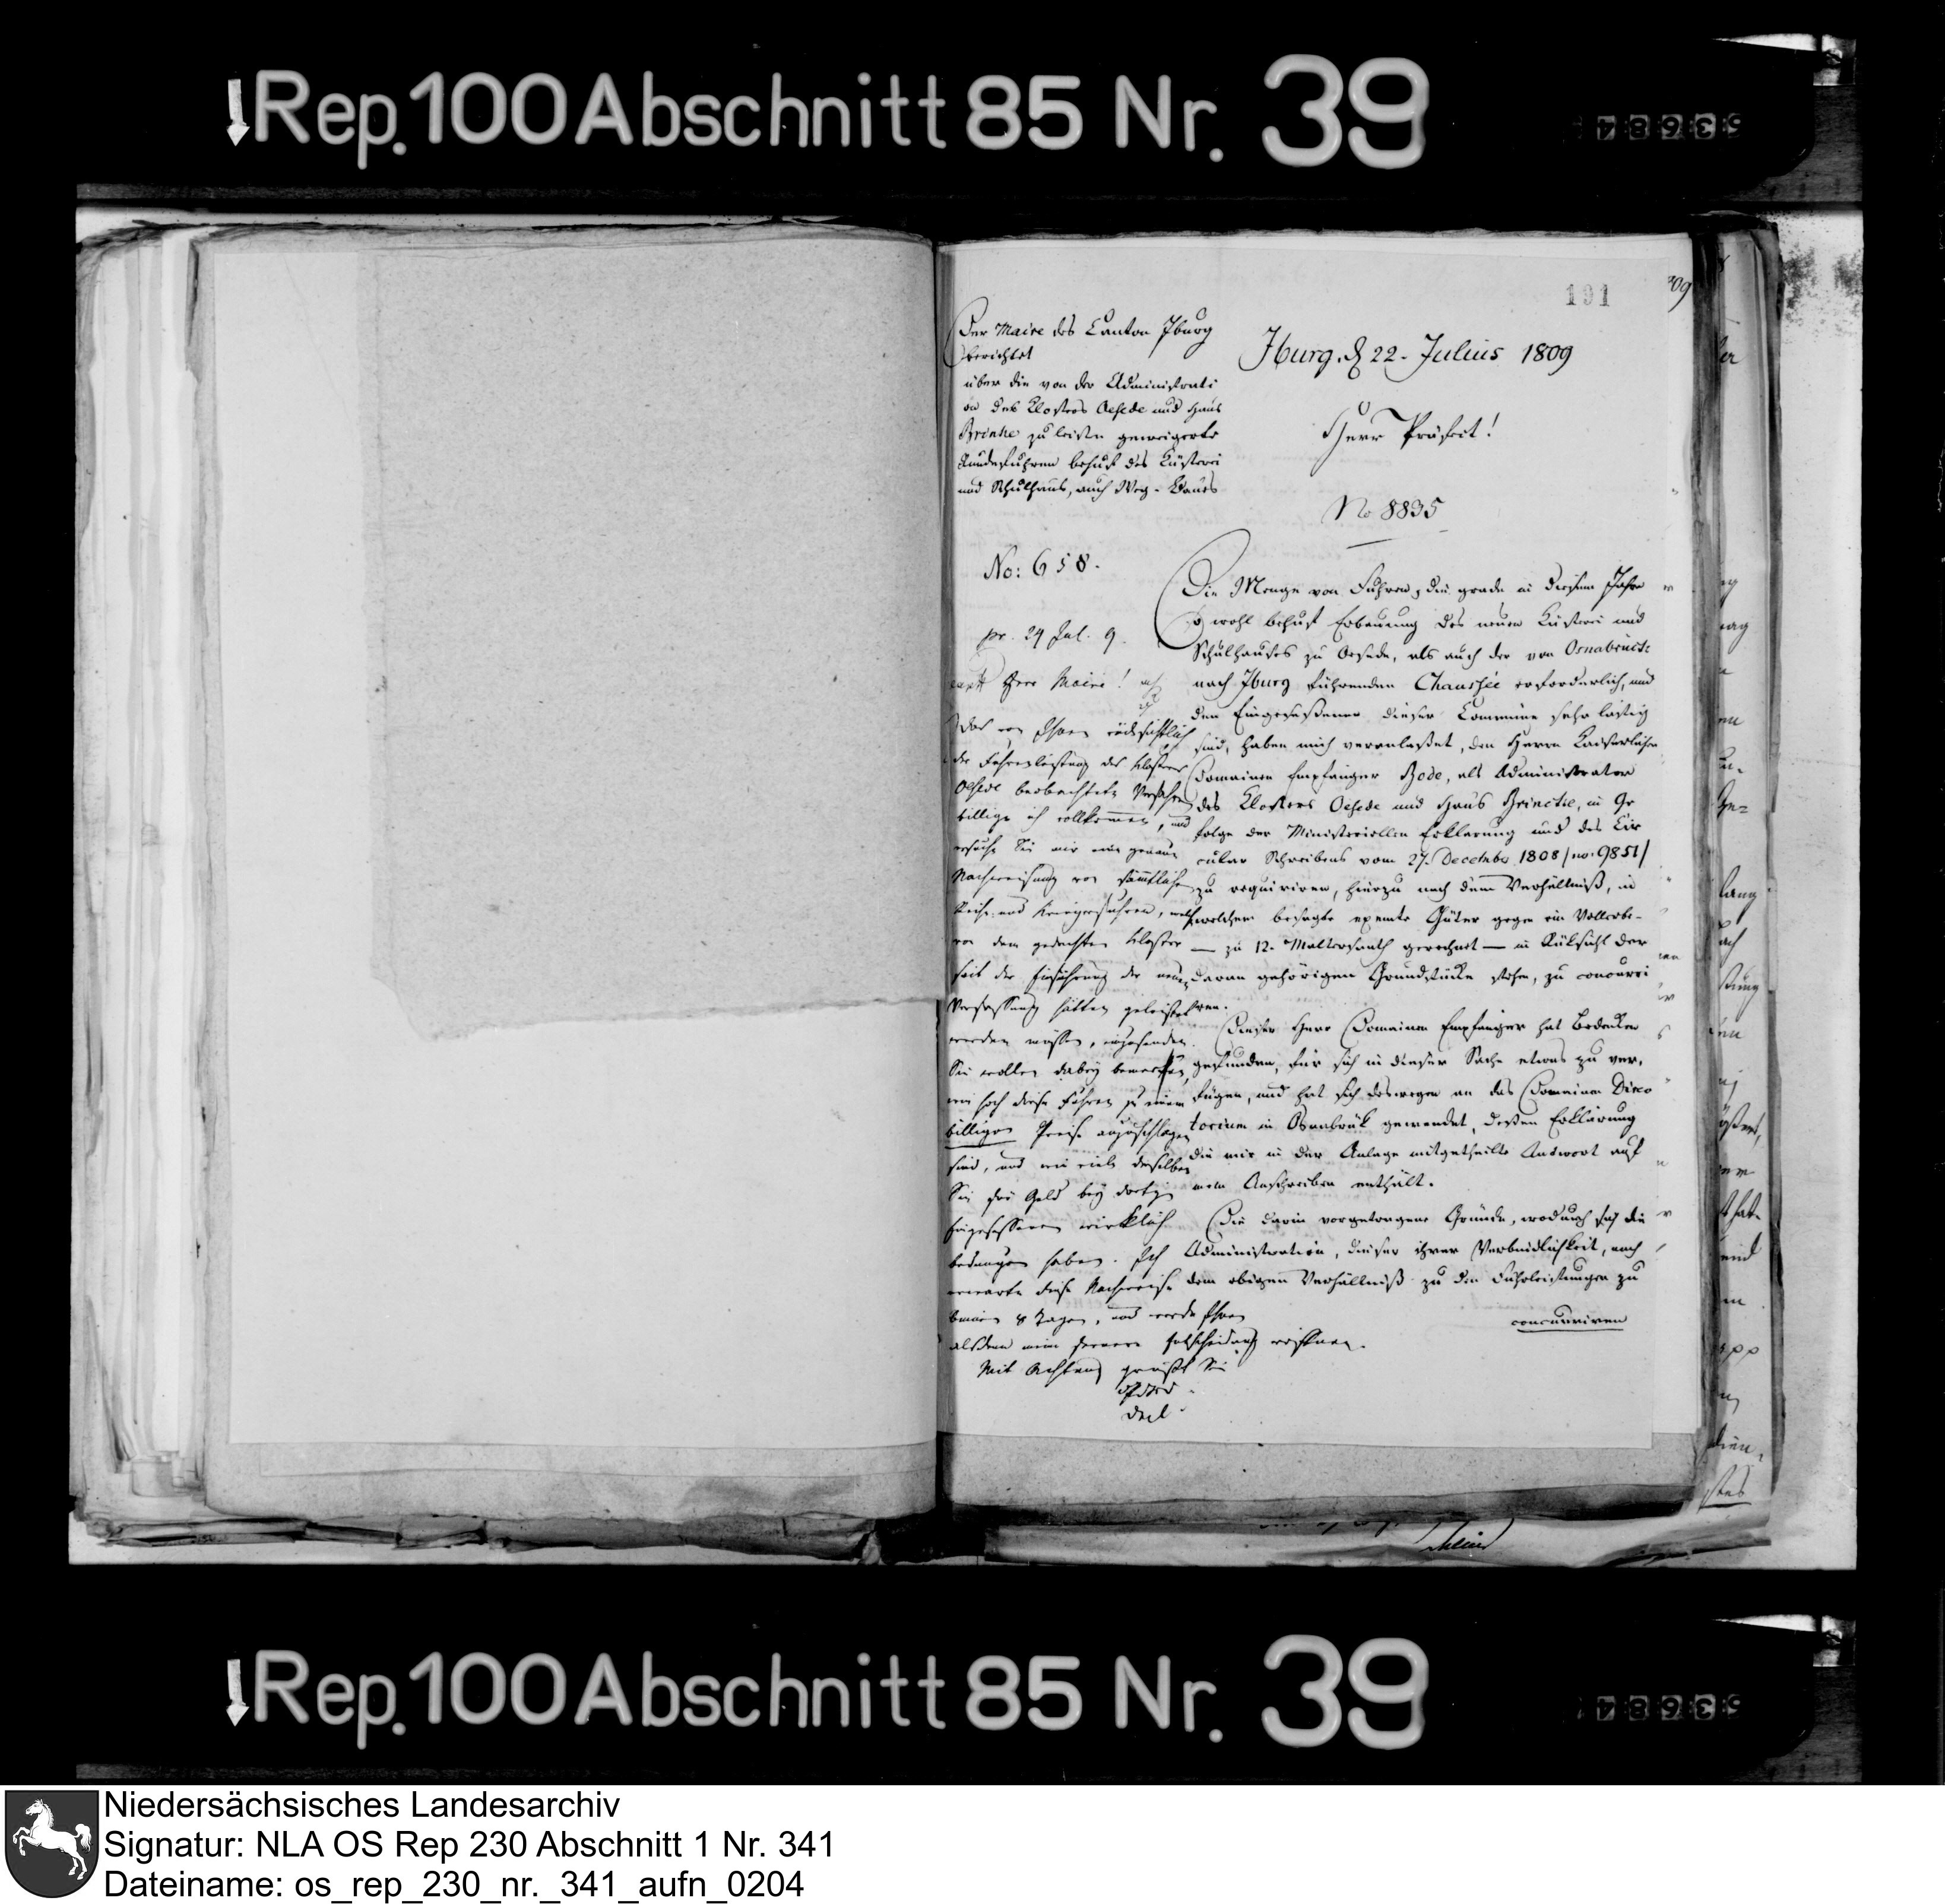 Rep. 100 Abschnitt 85 Nr. 39
191
209
Der Maire des Canton Iburg
berichtet
über die von der Administrati
on des Klosters Oesede und Haus
Brinke zu leisten geweigerte
Landesfuhren behuf des Küsterei
und Schulhaus, auch Weg-Baues
Iburg, d 22. Julius 1809
Herr Präfect!
No 8835
No: 658.
pr. 24 Jul. 9.
Die Menge von Fuhren, die grade in diesem Jahre
so wohl behuf Erbauung des neuen Küsterei und
Schulhauses zu Oesede, als auch der von Osnabrück
nach Iburg führenden Chaussée erforderlich, und
den Eingesessenen dieser Commüne sehr lästig
sind, haben mich veranlaßet, den Herrn Kaiserlichen
Domainen Empfänger Bode, als Administrator
des Klosters Oesede und Haus Brincke, in Ge
folge der Ministeriellen Erklärung und des Cir
cular Schreibens vom 27. December 1808 / no: 9851/
zu requiriren, hierzu nach dem Verhältniß, in
welchem besagte exemte Güter gegen ein Vollerbe
— zu 12. Maltersaath gerechnet — in Rüksicht der
daran gehörigen Grundstücke stehen, zu concurri
ren.
Dieser Herr Domainen Empfänger hat Bedenken
gefunden, für sich in dieser Sache etwas zu ver,
fügen, und hat sich deswegen an das Domainen Direc
torium in Osnabrük gewendet, deßen Erklärung
die mir in der Anlage mitgetheilte Antwort auf
mein Anschreiben enthält.
Die darin vorgetragene Gründe, wodurch sich die
Administration, dieser ihrer Verbindlichkeit, nach
dem obigen Verhältniß zu den Fuhrleistungen zu
concurriren
Herr Maire!
Das von Ihnen rücksichtlich
der Fuhrenleistung des Klosters
Oesede beobachtete Verfahren
billige ich vollkommen, und
ersuche Sie mir eine genaue
Nachweisung von sämtlichen
Reihe und Kriegerfuhren, welche
von dem gedachten Kloster
seit der Einführung der neuen
Verfassung hätten geleistet
werden müssen, einzusenden.
Sie wollen dabey bemerken,
wie hoch diese Fuhren zu einem
billigen Preise anzuschlagen
sind, und wie viele derselben
Sie für Geld bey dortigen
Eingesessenen wirklich
bedungen haben. Ich
erwarte diese Nachweise
binnen 8 Tagen, und werde Ihnen
alsdann meine fernere Entscheidung eröffnen.
Mit Achtung grüßt Sie
Rep. 100 Abschnitt 85 Nr. 39
Niedersächsisches Landesarchiv
Signatur: NLA OS Rep 230 Abschnitt 1 Nr. 341
Dateiname: os_rep_230_nr._341_aufn_0204